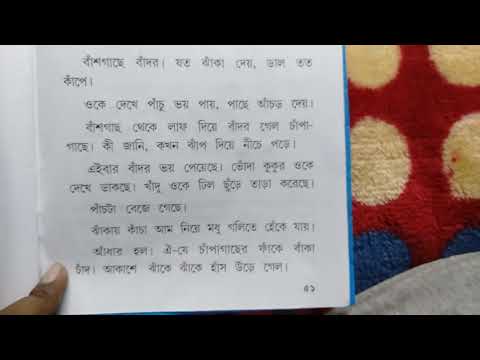 বাঁশগাছে বাঁদর। যত ঝাঁকা দেয়, ডাল তত
কাঁপে।
ওকে দেখে পাঁচু ভয় পায়, পাছে আঁচড় দেয়।
বাঁশগাছ থেকে লাফ দিয়ে বাঁদর গেল চাঁপা-
গাছে। কী জানি, কখন ঝাঁপ দিয়ে নীচে পড়ে।
এইবার বাঁদর ভয় পেয়েছে। ভোঁদা কুকুর ওকে
দেখে ডাকছে। খাঁদু ওকে ঢিল ছুঁড়ে তাড়া করেছে।
পাঁচটা বেজে গেছে।
ঝাঁকায় কাঁচা আম নিয়ে মধু গলিতে হেঁকে যায়।
আঁধার হল। ঐ-যে চাঁপাগাছের ফাঁকে বাঁকা
চাঁদ। আকাশে ঝাঁকে ঝাঁকে হাঁস উড়ে গেল।
৫১